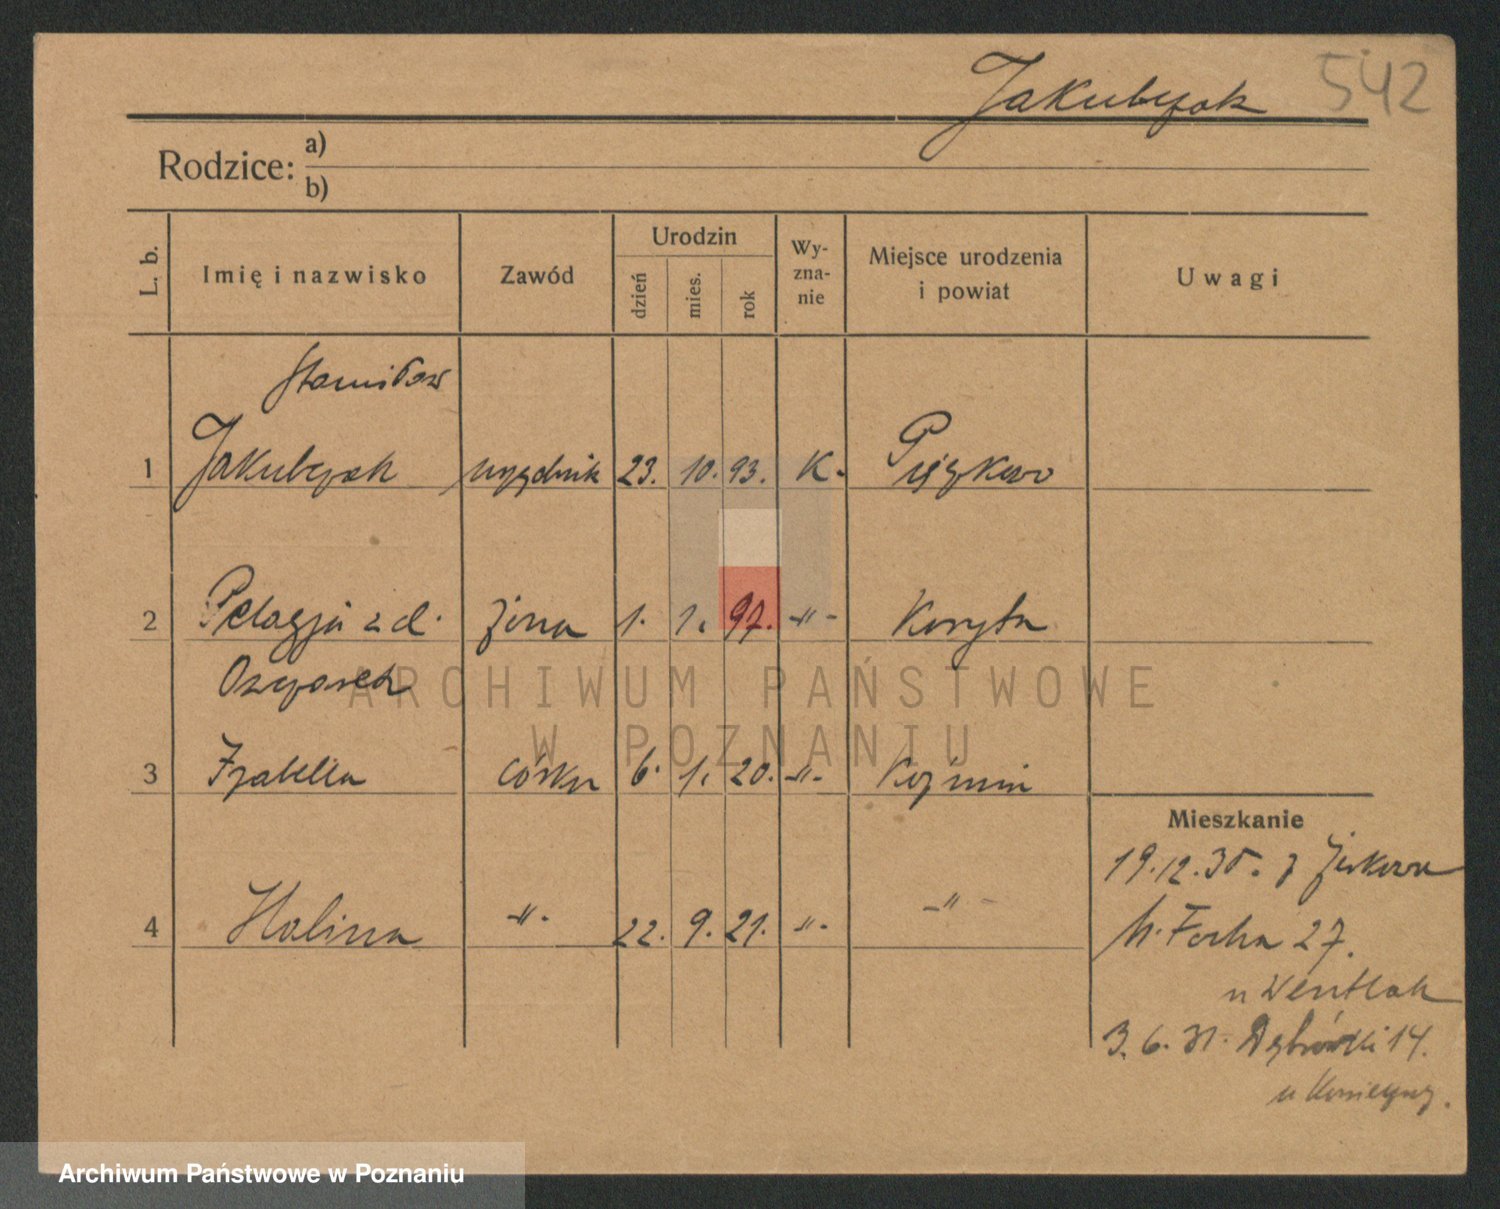 Jakubczak 542
Rodzice: a)
b)
L. b. Imię i nazwisko Zawód Urodzin dzień mies. rok Wy-zna-nie Miejsce urodzenia i powiat Uwagi
Stanisław
1 Jakubczak urzędnik 23. 10. 93. K.
2 Pelagja z d. żona 1. 1. 97. -"- Koryta
3 Izabella córka 6. 1. 20. -"- Koźmin
4 Halina -"- 22. 9. 21. -"- -"-
Mieszkanie
19.12.35. z
M. Focha 27.
u Wentlak
3. 6. Dąbrówki 14.
u
ARCHIWUM PAŃSTWOWE
W POZNANIU
Archiwum Państwowe w Poznaniu